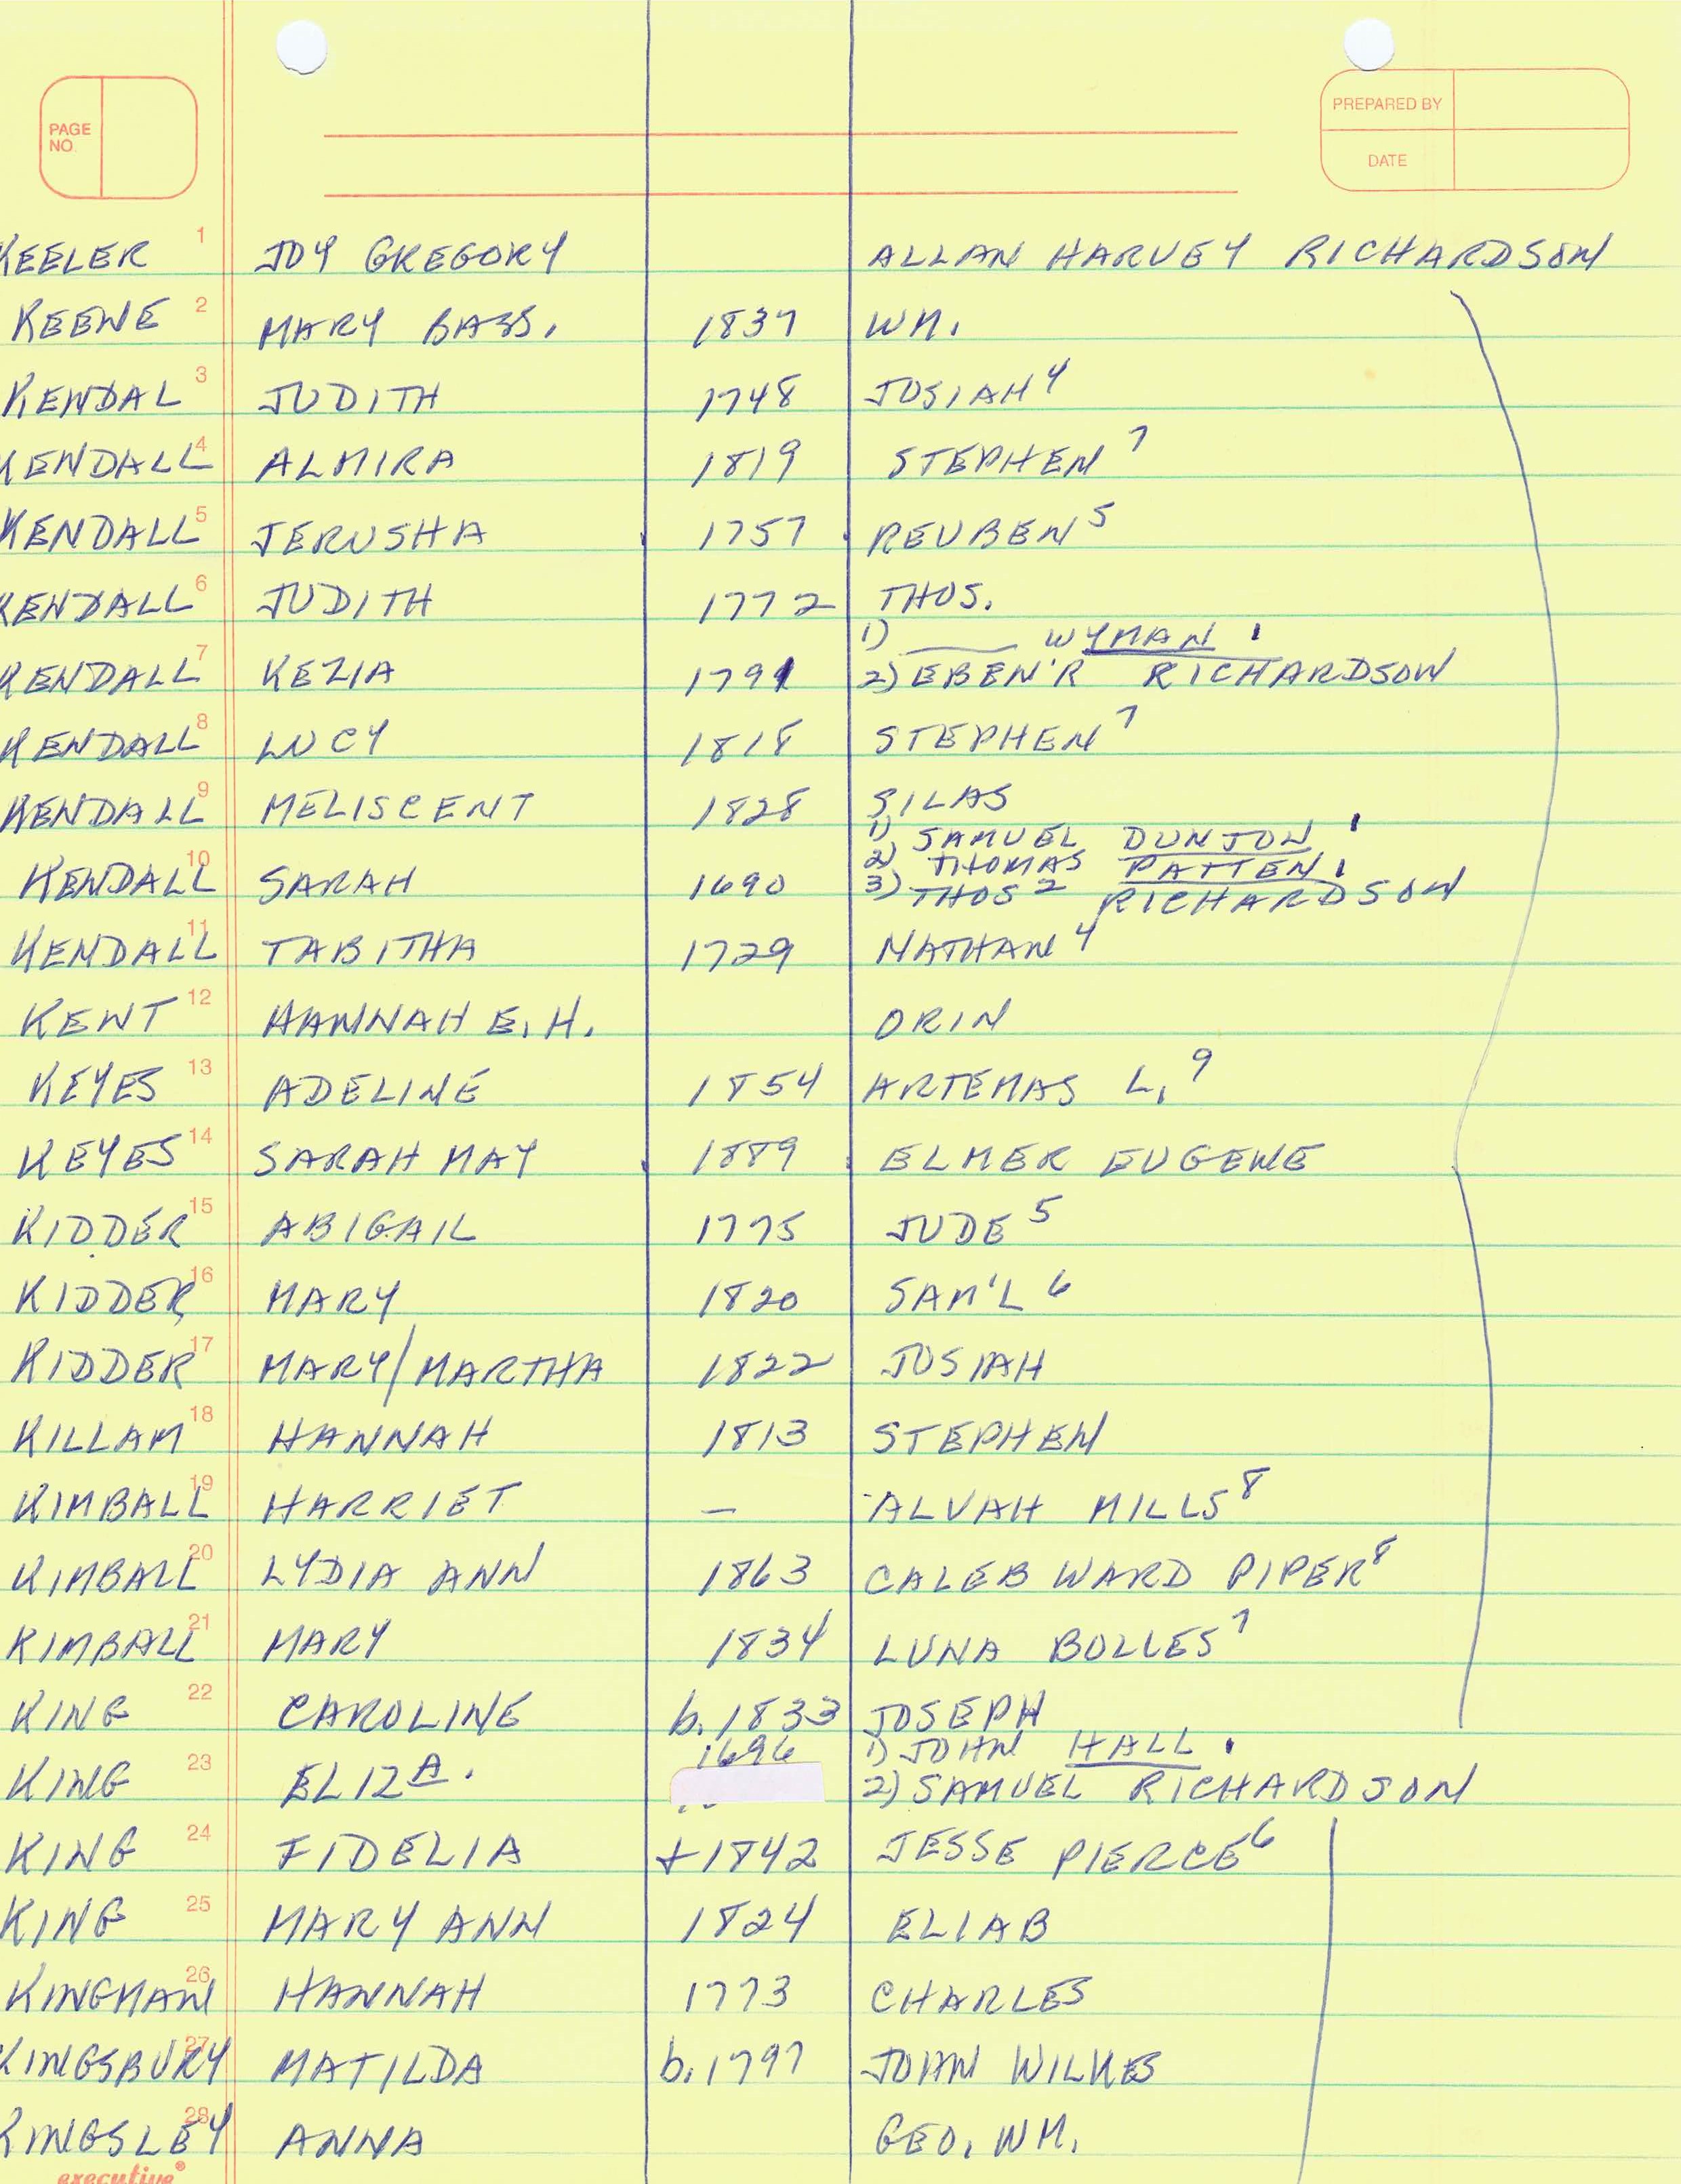 PAGE NO.
PREPARED BY
DATE
KEELER 1 JOY GREGORY ALLAN HARVEY RICHARDSON
KEENE 2 MARY BASS. 1837 WM.
KENDAL 3 JUDITH 1748 JOSIAH 4
KENDALL 4 ALMIRA 1819 STEPHEN 7
KENDALL 5 JERUSHA 1757 REUBEN 5
KENDALL 6 JUDITH 1772 THOS.
1) ___ WYMAN
KENDALL 7 KEZIA 1791 2) EBEN'R RICHARDSON
KENDALL 8 LUCY 1818 STEPHEN 7
KENDALL 9 MELISCENT 1828 SILAS
1) SAMUEL DUNTON
2) THOMAS PATTEN
KENDALL 10 SARAH 1690 3) THOS 2 RICHARDSON
KENDALL 11 TABITHA 1729 NATHAN 4
KENT 12 HANNAH E. H. ORIN
KEYES 13 ADELINE 1854 ARTEMAS L. 9
KEYES 14 SARAH MAY 1889 ELMER EUGENE
KIDDER 15 ABIGAIL 1775 JUDE 5
KIDDER 16 MARY 1820 SAM'L 6
KIDDER 17 MARY/MARTHA 1822 JOSIAH
KILLAM 18 HANNAH 1813 STEPHEN
KIMBALL 19 HARRIET — ALVAH MILLS 8
KIMBALL 20 LYDIA ANN 1863 CALEB WARD PIPER 8
KIMBALL 21 MARY 1834 LUNA BOLLES 7
KING 22 CAROLINE b. 1833 JOSEPH
1696 1) JOHN HALL
KING 23 ELIZA. 2) SAMUEL RICHARDSON
KING 24 FIDELIA +1842 JESSE PIERCE 6
KING 25 MARY ANN 1824 ELIAB
KINGMAN 26 HANNAH 1773 CHARLES
KINGSBURY 27 MATILDA b. 1797 JOHN WILKES
KINGSLEY 28 ANNA GEO. WM.
executive®